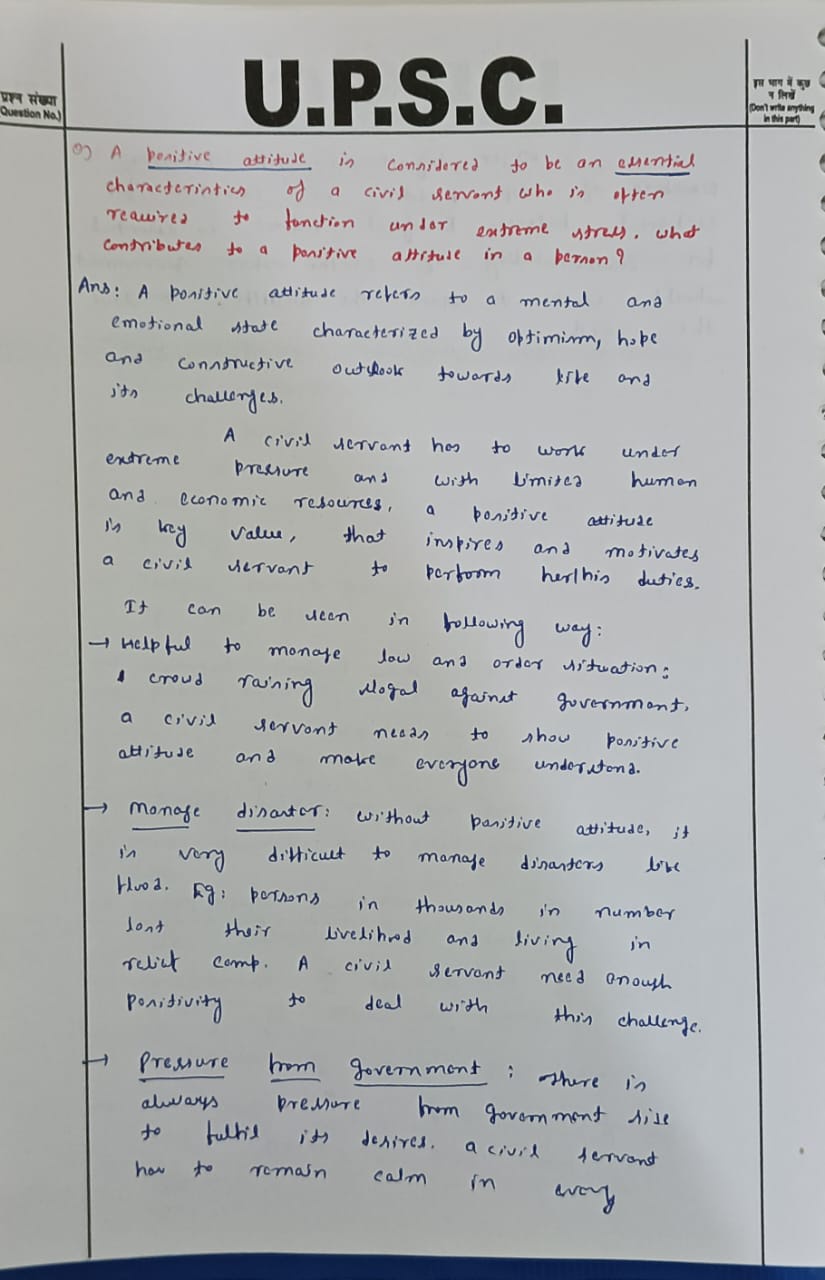 प्रश्न संख्या
(Question No.)
U.P.S.C.
इस भाग में कुछ
न लिखें
(Don't write anything
in this part)
Q) A positive attitude is considered to be an essential
characteristics of a civil servant who is often
required to function under extreme stress. what
contributes to a positive attitude in a person?
Ans: A positive attitude refers to a mental and
emotional state characterized by optimism, hope
and constructive outlook towards life and
its challenges.
A civil servant has to work under
extreme pressure and with limited human
and economic resources, a positive attitude
is key value, that inspires and motivates
a civil servant to perform her/his duties.
It can be seen in following way:
→ Helpful to manage law and order situation:
A crowd raising slogal against government,
a civil servant needs to show positive
attitude and make everyone understand.
→ Manage disaster: without positive attitude, it
is very difficult to manage disasters like
flood. Eg: persons in thousands in number
lost their livelihood and living in
relief camp. A civil servant need enough
positivity to deal with this challenge.
→ Pressure from government: There is
always pressure from government side
to fulfil its desires. a civil servant
has to remain calm in every